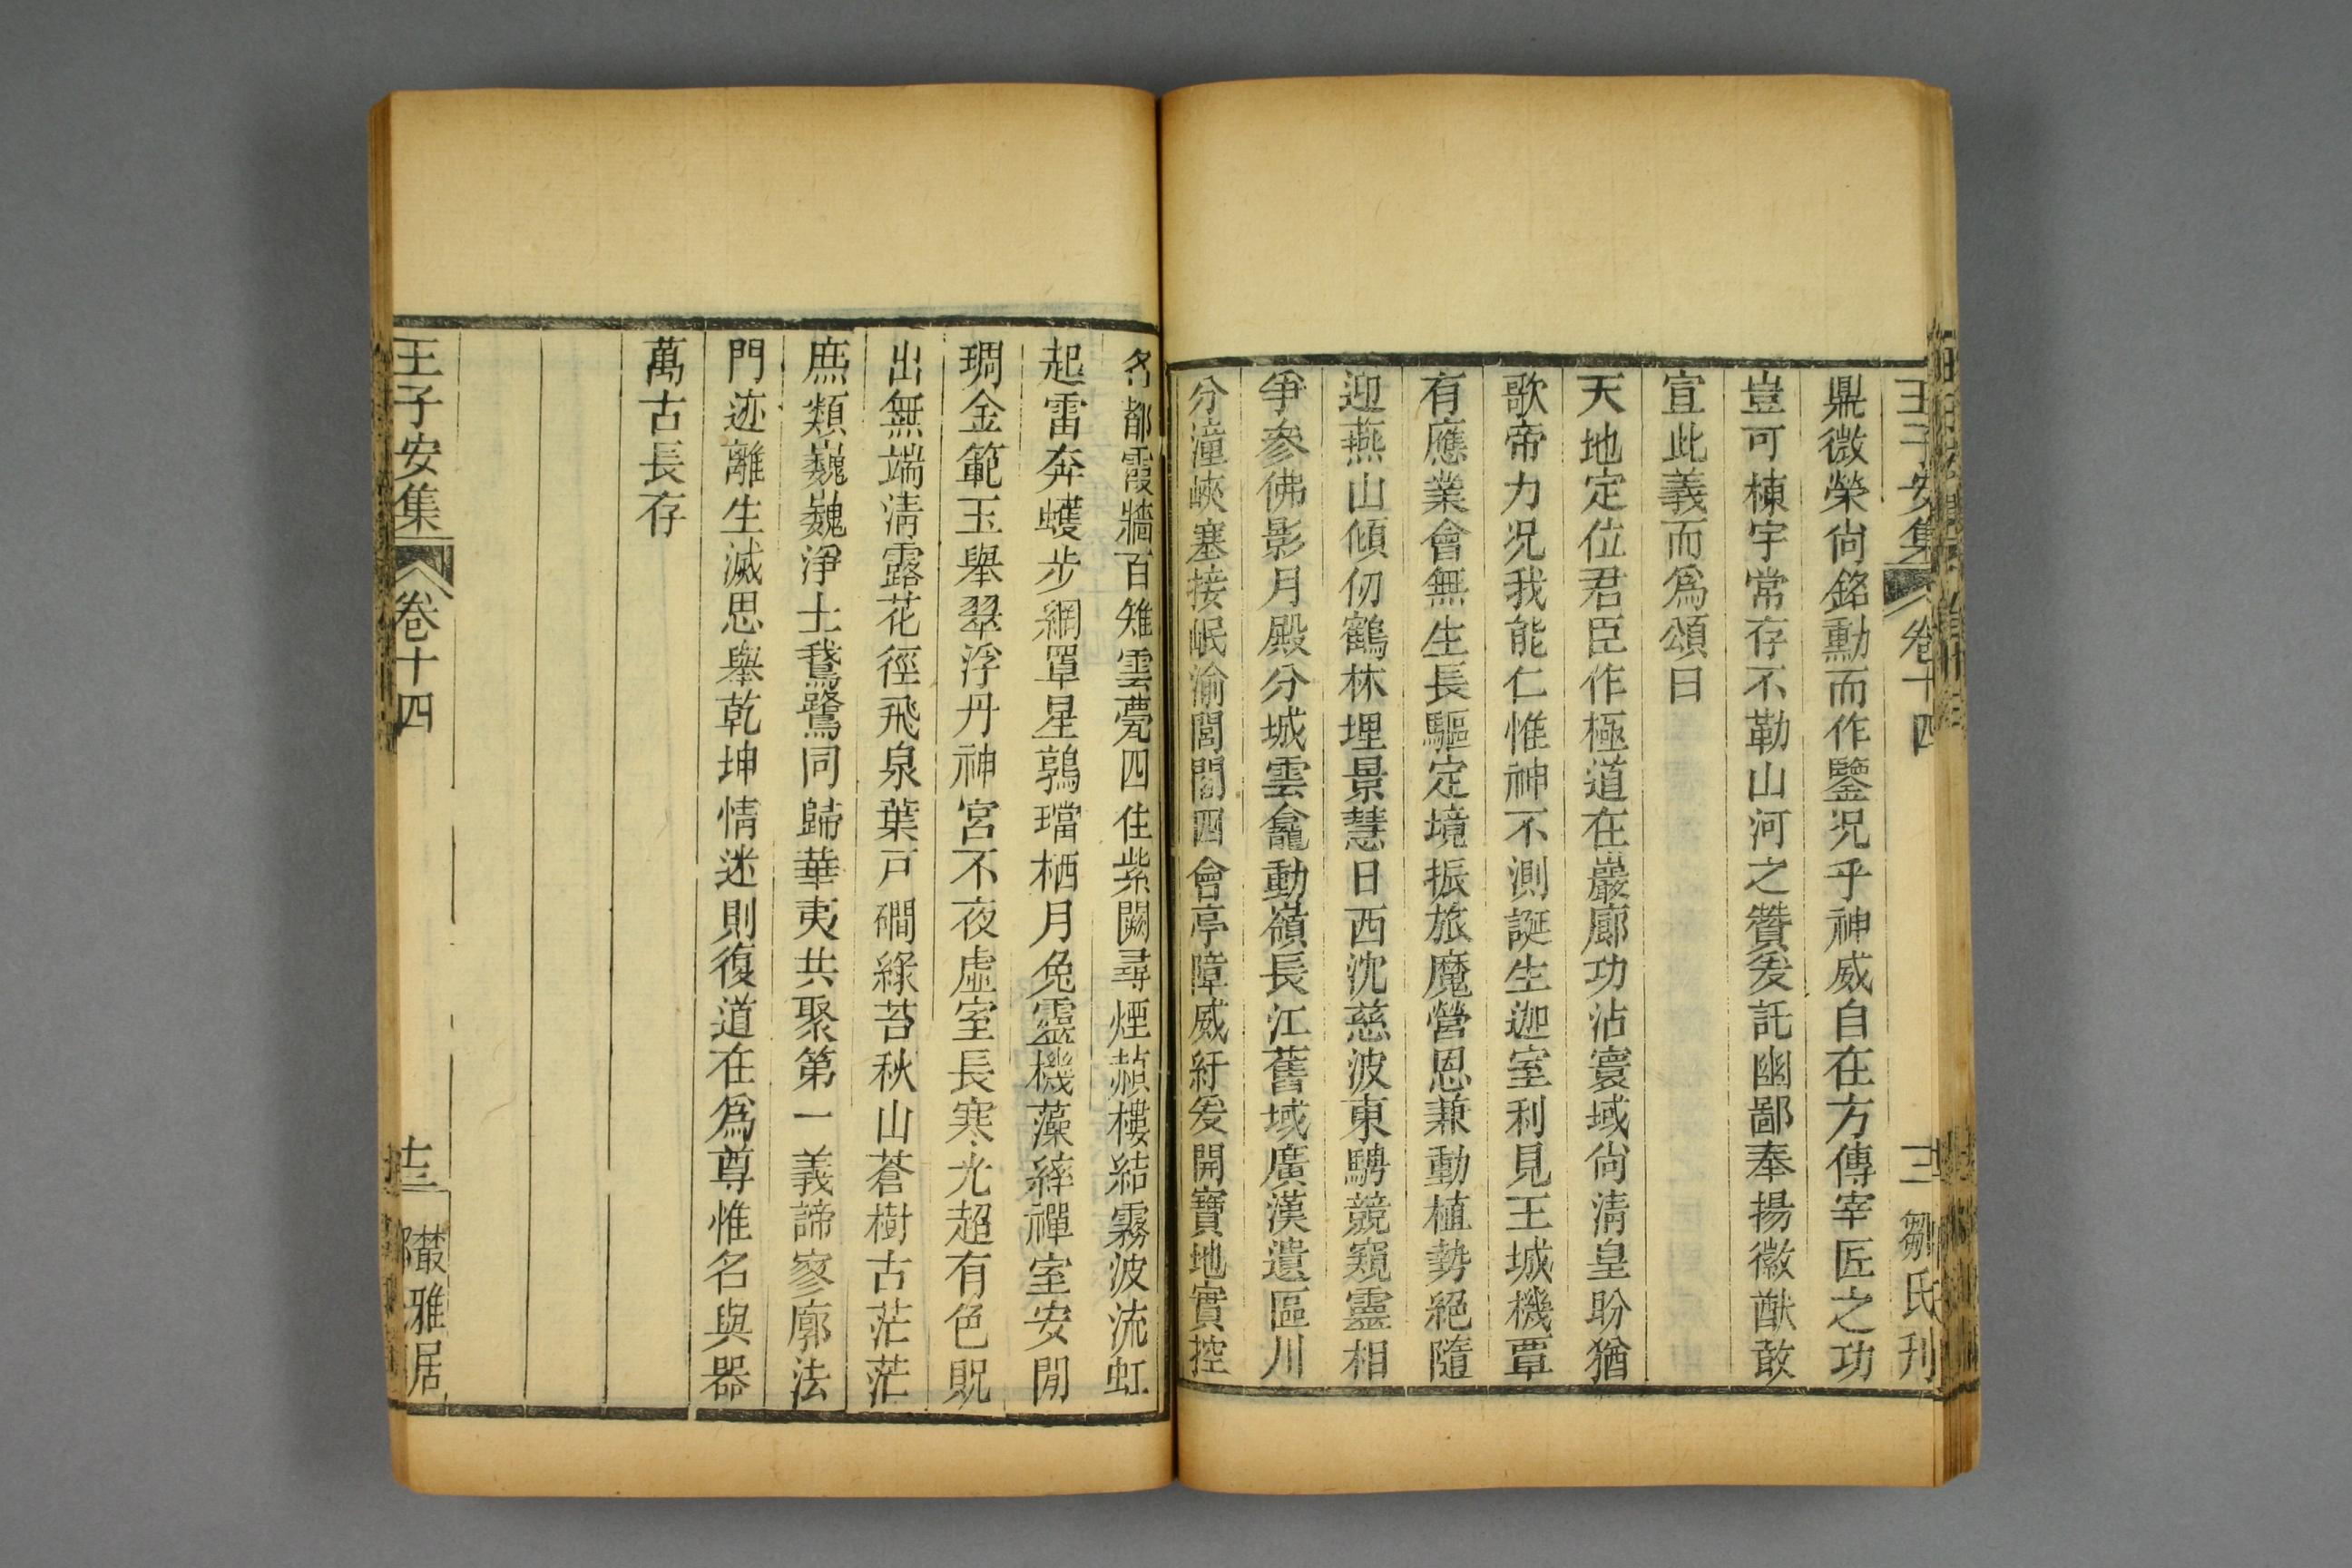 王子安集 卷十四 十二 鄒氏刋
鼎微榮尙銘勳而作鑒况乎神威自在方傳宰匠之功
豈可棟宇常存不勒山河之贊爰託幽鄙奉揚徽猷敢
宣此義而爲頌曰
天地定位君臣作極道在巖廊功沾寰域尙淸皇盼猶
歌帝力况我能仁惟神不測誕生迦室利見王城機覃
有應業會無生長驅定境振旅魔營恩兼動植勢絕隨
迎燕山傾仞鶴林埋景慧日西沈慈波東騁競窺靈相
爭參佛影月殿分城雲龕動嶺長江舊域廣漢遺區川
分潼峽塞接岷渝閭閻四會亭障威紆爰開寶地實控
名都霞牆百雉雲甍四住紫闕尋煙赬樓結霧波流虹
起雷奔蠖步網罩星鶉璫栖月兔靈機藻繂禪室安閒
琱金範玉舉翠浮丹神宮不夜虛室長寒光超有色貺
出無端淸露花徑飛泉葉戸磵綠苔秋山蒼樹古茫茫
庶類巍巍淨土鵞鷺同歸華夷共聚第一義諦寥廓法
門迹離生滅思舉乾坤情迷則復道在爲尊惟名與器
萬古長存
王子安集 卷十四 十三 叢雅居